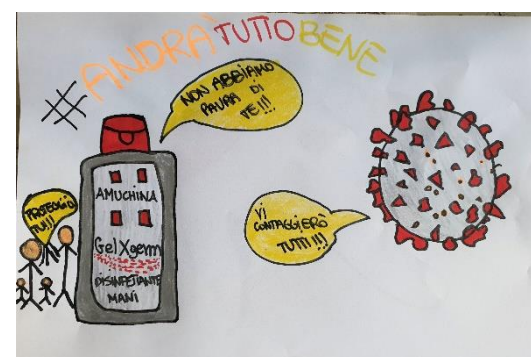 #ANDRA' TUTTO BENE
NON ABBIAMO
PAURA DI
TE!!!
AMUCHINA
Gel Xgerm
DISINFETTANTE
MANI
VI
CONTAGGIERÒ
TUTTI!!!